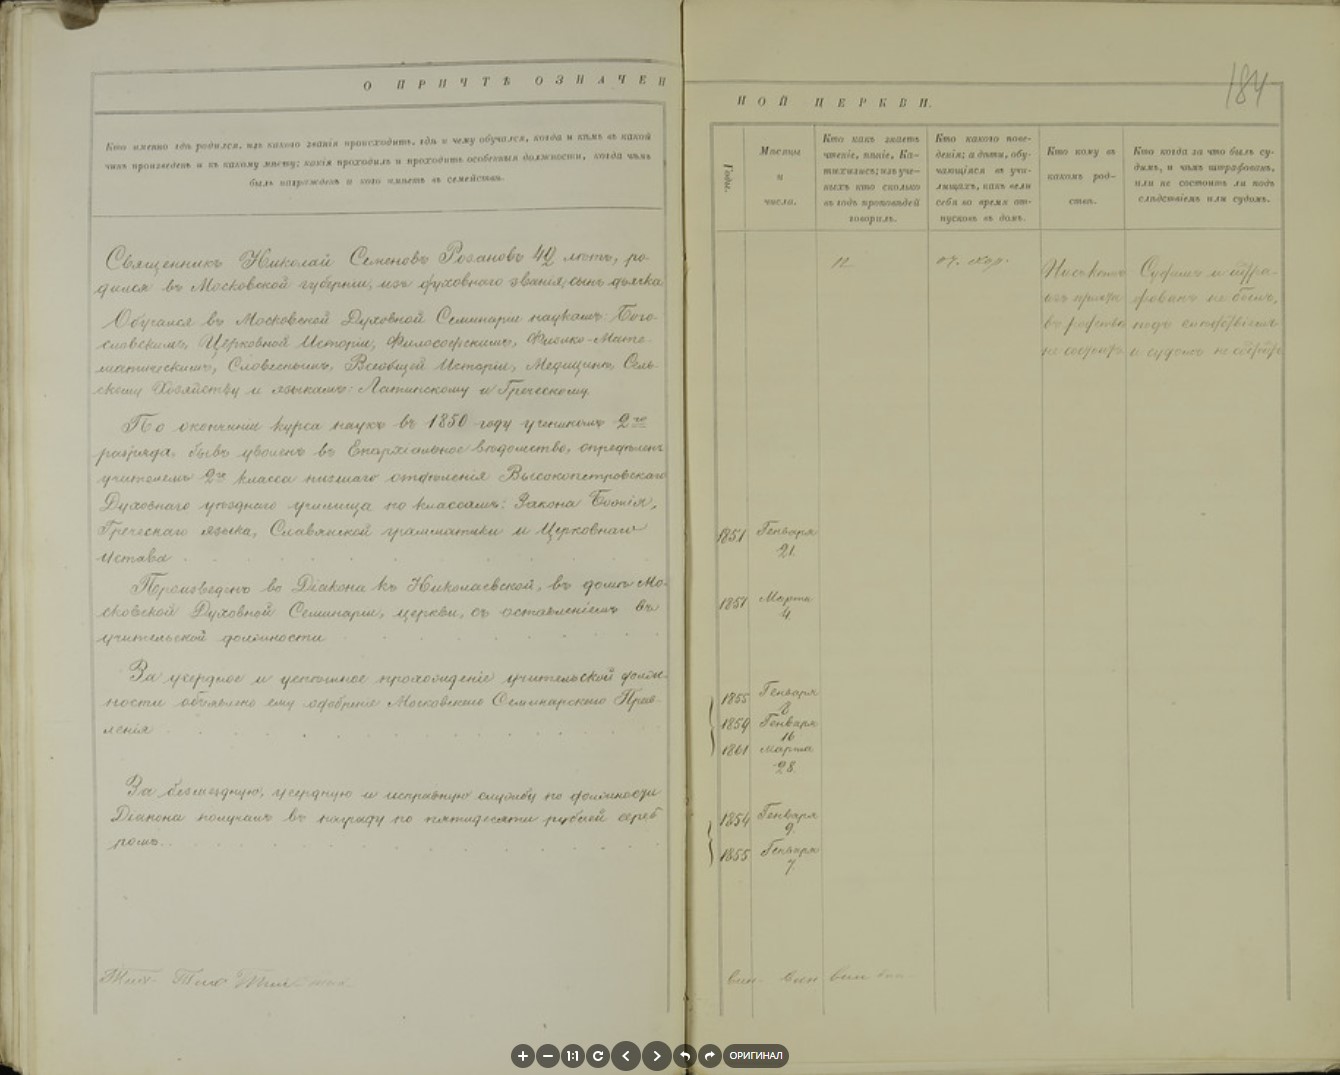 О ПРИЧТѢ ОЗНАЧЕН
НОЙ ЦЕРКВИ.
184
Кто именно гдѣ родился, изъ какого званія происходитъ, гдѣ и чему обучался, когда и кѣмъ въ какой
чинъ произведенъ и къ какому мѣсту; какія проходилъ и проходитъ особенныя должности, когда чѣмъ
былъ награжденъ и кого имѣетъ въ семействѣ.
Годы.
Мѣсяцы
и
числа.
Кто какъ знаетъ
чтеніе, пѣніе, Ка-
тихизисъ; изъ уче-
ныхъ кто сколько
въ годъ проповѣдей
говорилъ.
Кто какого пове-
денія; а дѣти, обу-
чающіяся въ учи-
лищахъ, какъ вели
себя во время от-
пусковъ въ домъ.
Кто кому въ
какомъ род-
ствѣ.
Кто когда за что былъ су-
димъ, и чѣмъ штрафованъ,
или не состоитъ ли подъ
слѣдствіемъ или судомъ.
Священникъ Николай Семеновъ Розановъ 42 лѣтъ, ро-
дился въ Московской губерніи, изъ духовнаго званія, сынъ дьячка
Обучался въ Московской Духовной Семинаріи наукамъ: Бого-
словскимъ, Церковной Исторіи, Философскимъ, Физико-Мате-
матическимъ, Словеснымъ, Всеобщей Исторіи, Медицинѣ, Сель-
скому Хозяйству и языкамъ: Латинскому и Греческому.
По окончаніи курса наукъ въ 1850 году ученикомъ 2го
разряда, бывъ уволенъ въ Епархіальное вѣдомство, опредѣленъ
учителемъ 2го класса низшаго отдѣленія Высокопетровскаго
Духовнаго уѣзднаго училища по классамъ: Закона Божія,
Греческаго языка, Славянской грамматики и Церковнаго
Устава
1851 Генваря
21.
Произведенъ во Діакона къ Николаевской, въ домѣ Мо-
сковской Духовной Семинаріи, церкви, съ оставленіемъ въ
учительской должности
1851 Марта
4.
За усердное и успѣшное прохожденіе учительской долж-
ности объявлено ему одобреніе Московскаго Семинарскаго Прав-
ленія
1855 Генваря
1859 Генваря
16
1861 Марта
28.
За безмездную, усердную и исправную службу по должности
Діакона получалъ въ награду по пятидесяти рублей сереб
ромъ.
1854 Генваря
9.
1855 Генваря
7.
Ни съ кѣмъ
изъ причта
въ родствѣ
не состоитъ
Судимъ и штра-
фованъ не былъ,
подъ слѣдствіемъ
и судомъ не состоитъ
1:1
ОРИГИНАЛ